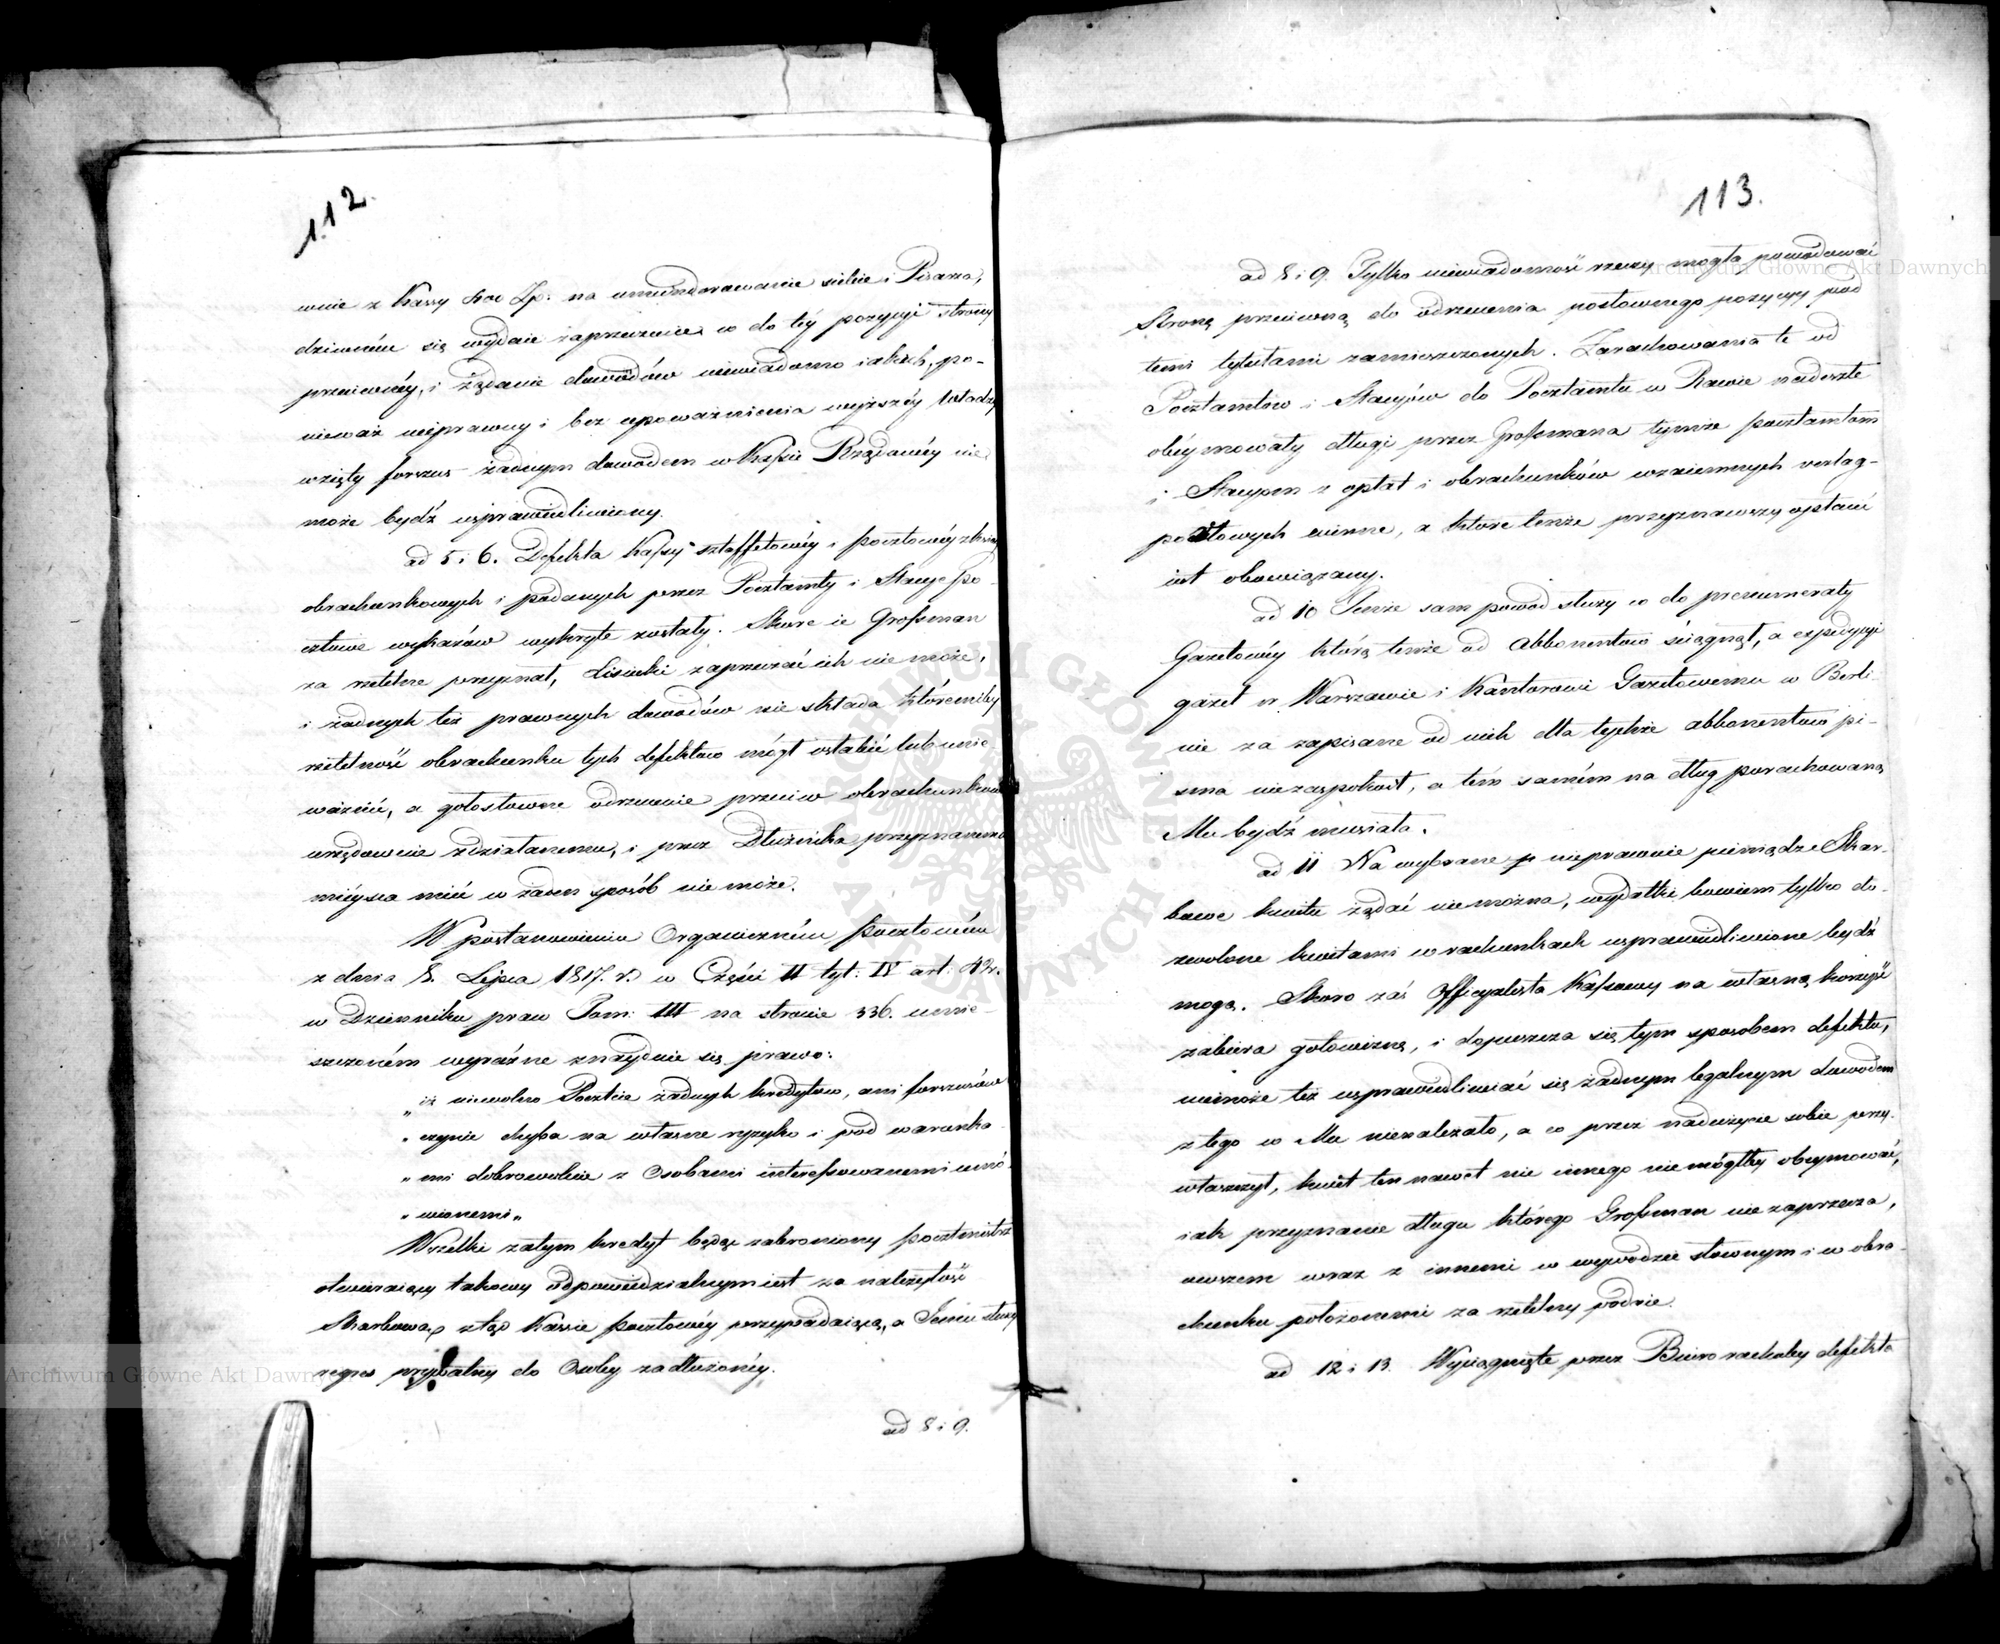 112.
wnie z Kassy Złp: na umundorowanie siebie i Pisarza,
dziwném się wydaie zaprzeczenie co do téy pozycyi strony
przeciwnéy, i żądanie dowodów niewiadomo iakich, po-
nieważ nieprawny i bez upoważnienia wyższéy Władzy
wzięty forszus żadnym dowodem w Kassie Rządowéy nie
może bydź usprawiedliwiony.
ad 5 i 6. Defekta Kassy sztaffetowéy i pocztowéy z
obrachunkowych i podanych przez Pocztamty i Stacye Po-
cztowe wykazów wykryte zostały. Skoro ie Grossman
za rzetelne przyznał, Lisiecki zaprzeczać ich nie może,
i żadnych też prawnych dowodów nie składa któremiby
rzetelność obrachunku tych defektów mógł osłabić lub unie-
ważnić, a gołosłowne odrzucenie przeciw obrachunkowi
urzędownie zdziałanemu, i przez Dłużnika przyznanemu
mieysca mieć w żaden sposób nie może.
W postanowieniu Organiczném Pocztowém
z dnia 8. Lipca 1817. r. w Części II tyt: IV art: 42.
w Dzienniku praw Tom: III na stronie 336. umie-
szczoném wyraźne znayduie się prawo:
„iż niewolno Poczcie żadnych kredytów, ani forszusów
„czynić chyba na własne ryzyko i pod warunka-
„mi dobrowolnie z Osobami interessowanemi umó-
„wionemi„
Wszelki zatym kredyt będąc zabroniony pocztmistrz
otwieraiący takowy odpowiedzialnym iest za należytość
Skarbową ztąd Kassie Pocztowéy przypadaiącą, a Jemu służy
regres prywatny do Osoby zadłużonéy.
ad 8 i 9.
113.
ad 8 i 9. Tylko niewiadomość rzeczy mogła powodować
Stronę przeciwną do odrzucenia posłownego pozycyy pod
temi tytułami zamieszczonych. Zarachowania te od
Pocztamtów i Stacyów do Pocztamtu w Rawie nadeszłe
obéymowały długi przez Grossmana tymże pocztamtom
i Stacyom z opłat i obrachunków wzaiemnych verlag-
pocztowych winne, a które tenże przyznawszy opłacić
iest obowiązany.
ad 10 Tenże sam powód służy co do prenumeraty
Gazetowéy którą tenże od Abbonentów ściągnął, a expedycyi
gazet w Warszawie i Kantorowi Gazetowemu w Berli-
nie za zapisane od nich dla tychże abbonentów pi-
sma niezaspokoił, a tém samém na dług porachowaną
Mu bydź musiała.
ad 11 Na wybrane nieprawnie pieniądze Skar-
bowe kwitu żądać nie można, wydatki bowiem tylko do-
zwolone kwitami w rachunkach usprawiedliwione bydź
mogą. Skoro zaś Officyalista Kassowy na własną korzyść
zabiera gotowiznę, i dopuszcza się tym sposobem defektu,
niemoże też usprawiedliwiać się żadnym legalnym dowodem
z tego co Mu nienależało, a co przez nadużycie sobie przy-
właszczył, kwit ten nawet nic innego nie mógłby obeymować,
iak przyznanie długu którego Grossman nie zaprzecza,
owszem wraz z innemi w wywodzie słownym i w obra-
chunku położonemi za rzetelny podaie.
ad 12 i 13. Wyciągnięte przez Biuro rachuby defekta
Archiwum Główne Akt Dawnych
Archiwum Główne Akt Dawnych
ARCHIWUM GŁÓWNE AKT DAWNYCH